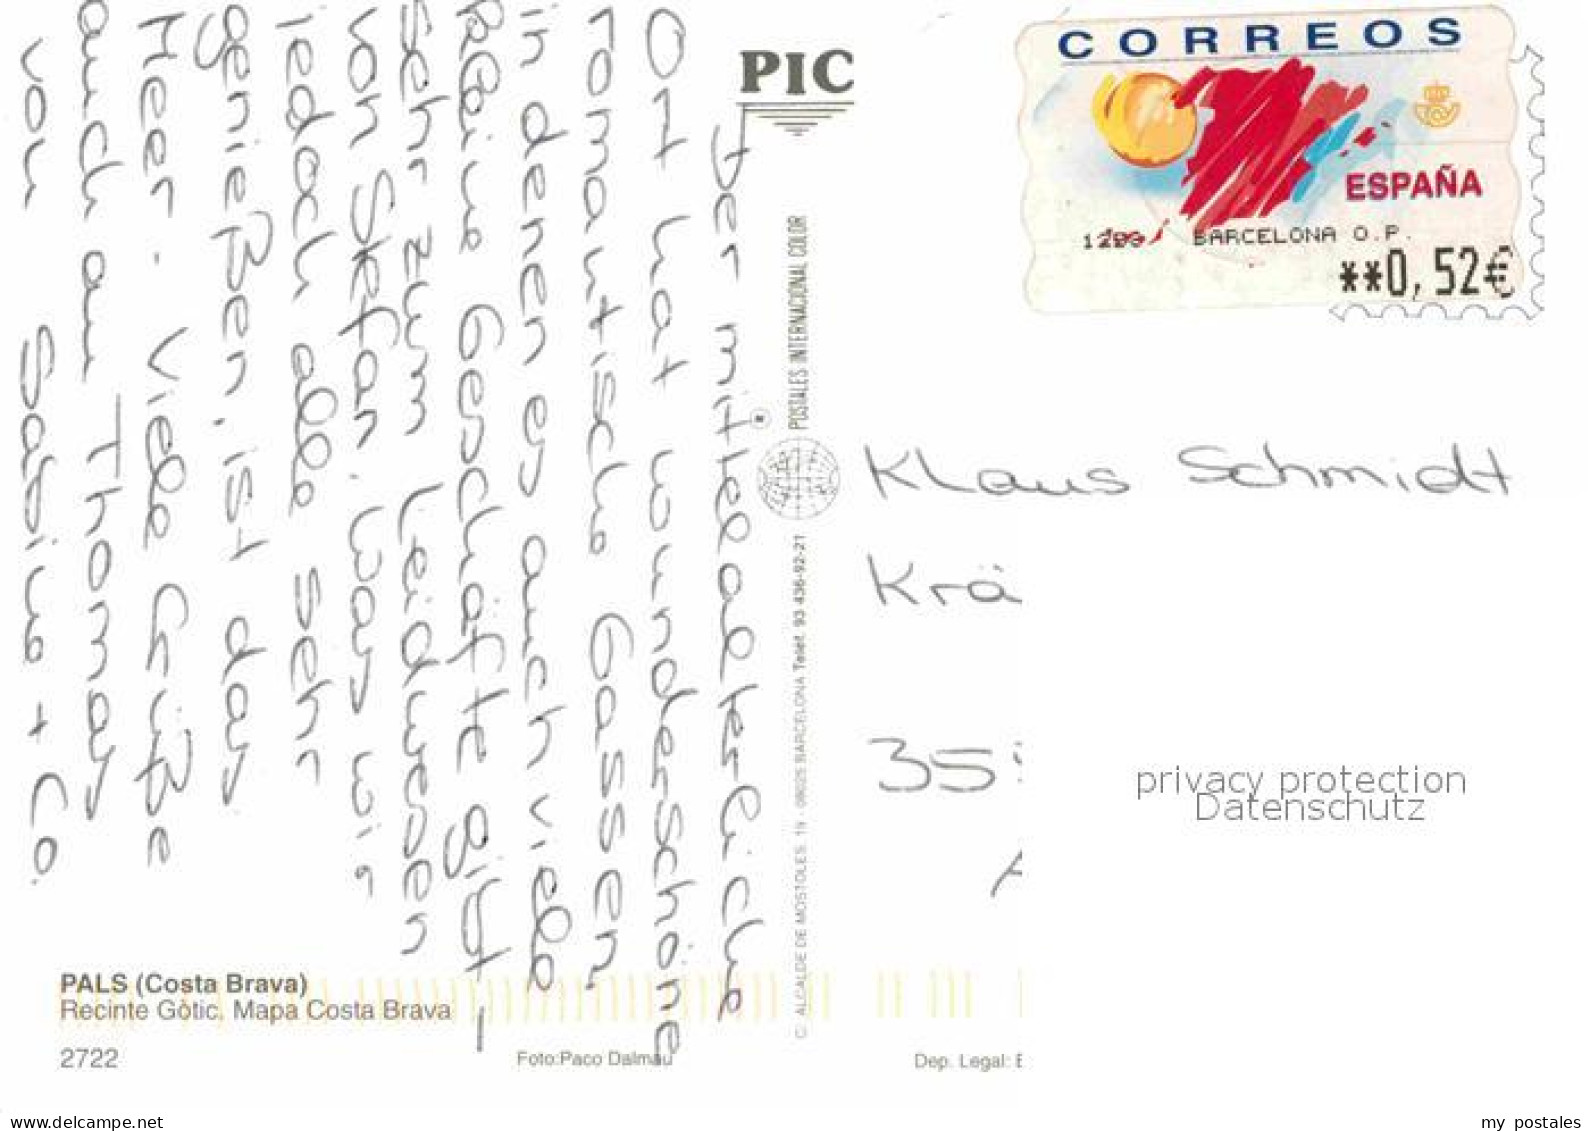 Der mittelalterliche
Ort hat wunderschöne
romantische Gassen,
in denen es auch viele
kleine Geschäfte gibt -
sehr zum Leidwesen
von Stefan. Was wir
jedoch alle sehr
genießen, ist das
Meer. Viele Grüße
auch an Thomas
von Sabine + Co.
PIC
POSTALES INTERNACIONAL COLOR
C/. ALCALDE DE MOSTOLES, 19 - 08025 BARCELONA Teléf. 93 436-92-21
CORREOS
ESPAÑA
BARCELONA O.P.
**0,52€
Klaus Schmidt
Krä
35
A
privacy protection
Datenschutz
PALS (Costa Brava)
Recinte Gòtic. Mapa Costa Brava
2722
Foto:Paco Dalmau
Dep. Legal:
www.delcampe.net
my postales